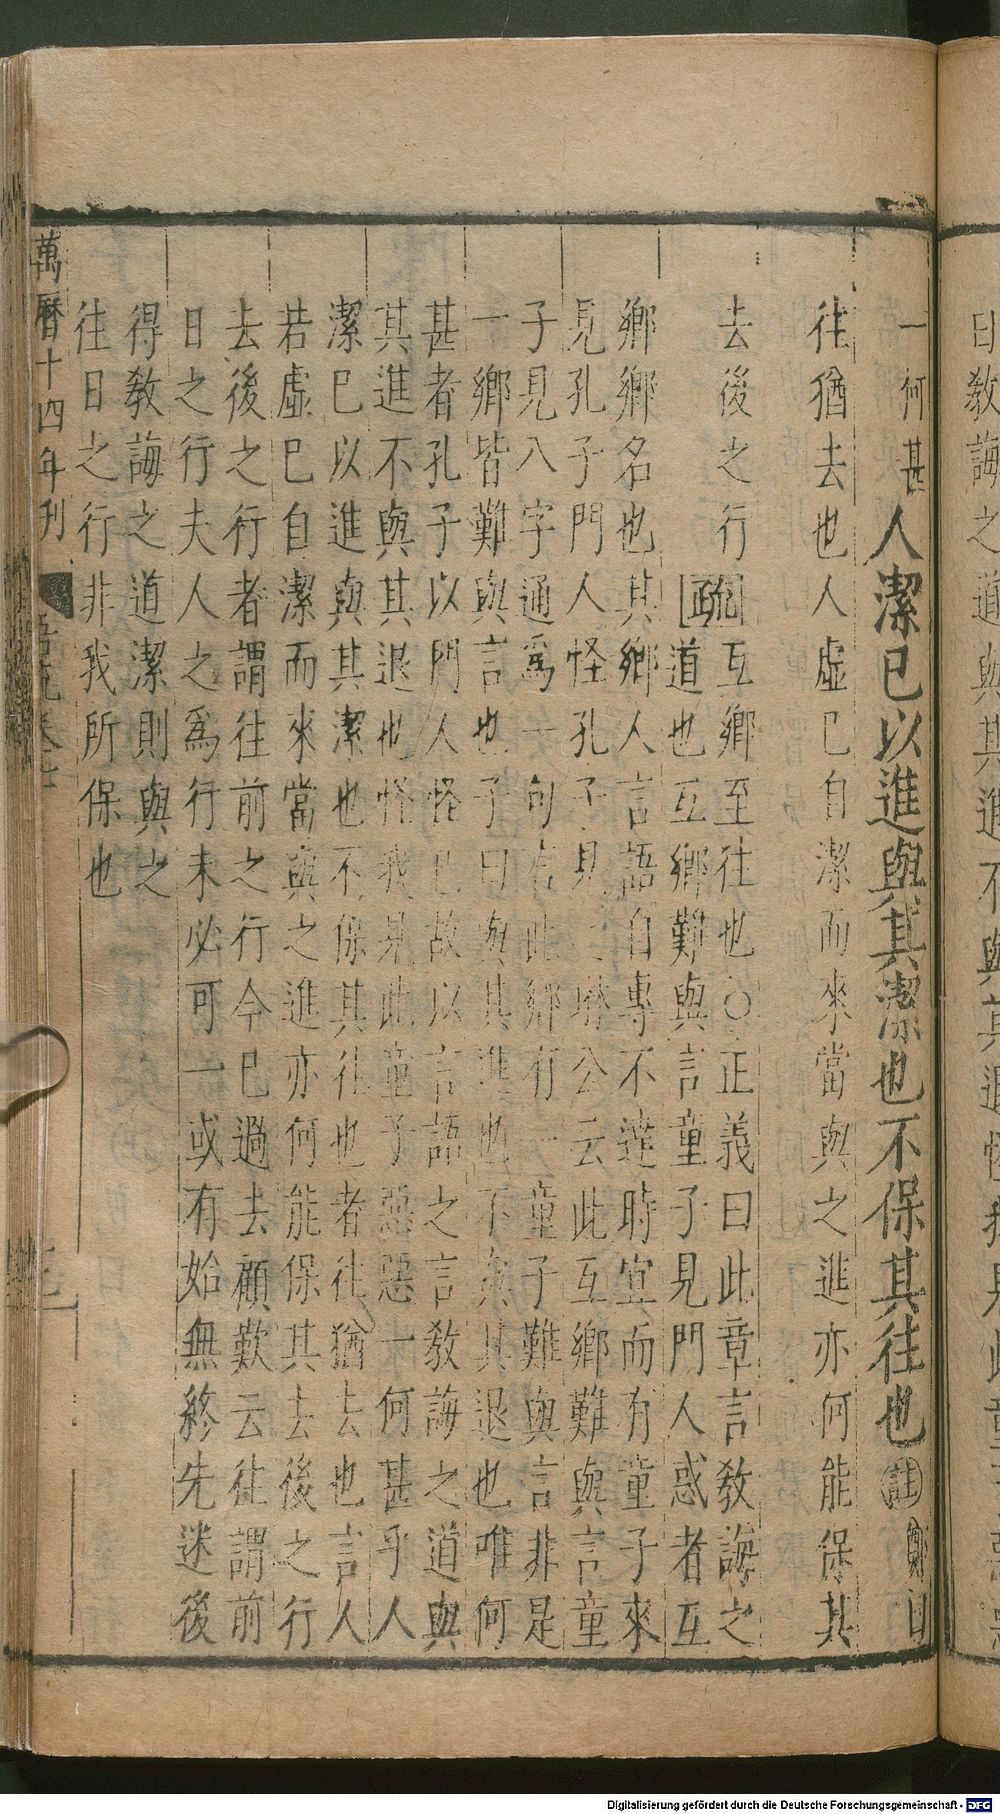 曰教誨之道與其進不與其退怪我見此童子惡惡
一何甚人潔已以進與其潔也不保其往也註鄭曰
往猶去也人虛已自潔而來當與之進亦何能保其
去後之行疏互鄉至往也○正義曰此章言教誨之
道也互鄉難與言童子見門人惑者互
鄉鄉名也其鄉人言語自專不達時宜而有童子來
見孔子門人怪孔子見之琳公云此互鄉難與言童
子見八字通爲一句言此鄉有一童子難與言非是
一鄉皆難與言也子曰與其進也不與其退也唯何
甚者孔子以門人怪已故以言語之言教誨之道與
其進不與其退也怪我見此童子惡惡一何甚乎人
潔已以進與其潔也不保其往也者往猶去也言人
若虛已自潔而來當與之進亦何能保其去後之行
去後之行者謂往前之行今已過去顧歡云往謂前
日之行夫人之爲行未必可一或有始無終先迷後
得教誨之道潔則與之
往日之行非我所保也
萬曆十四年刊 卷七
Digitalisierung gefördert durch die Deutsche Forschungsgemeinschaft - DFG